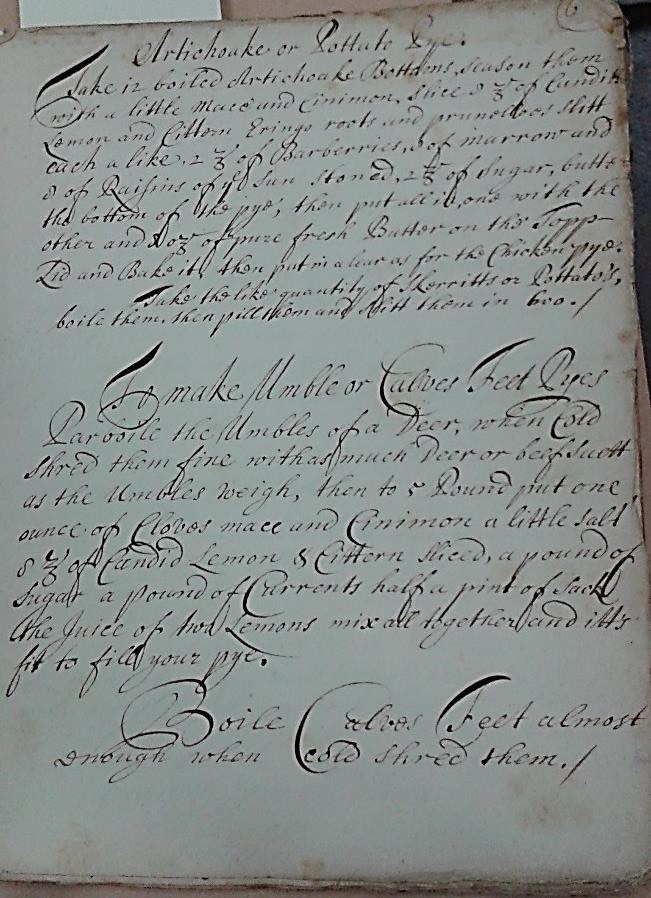 6
Artichoake or Pottato Pye.
Take 12 boiled Artichoake Bottoms, season them
with a little mace and Cinimon, slice 8 ℥ of Candid
Lemon and Cittern Eringo roots and prunelloes slitt
each a like, 2 ℥ of Barberries, of marrow and
8 of Raisins of ye Sun stoned, 2 ℥ of Sugar, butter
the bottom of the pye, then put all in, one with the
other and 8 oz of pure fresh Butter on the Topp
Lid and Bake it, then put in a lear as for the Chicken pye.
Take the like quantity of Skerritts or Pottato's,
boile them, then pill them and slitt them in two./
To make Umble or Calves Feet Pyes
Parboile the Umbles of a Deer, when Cold
shred them fine with as much Deer or beef suett
as the Umbles weigh, then to 5 Pound put one
ounce of Cloves mace and Cinimon a little salt
8 ℥ of Candid Lemon & Cittern sliced, a pound of
sugar a pound of Currents half a pint of sack
the Juice of two Lemons mix all together and itts
fit to fill your pye.
Boile Calves Feet almost
enough when cold shred them./